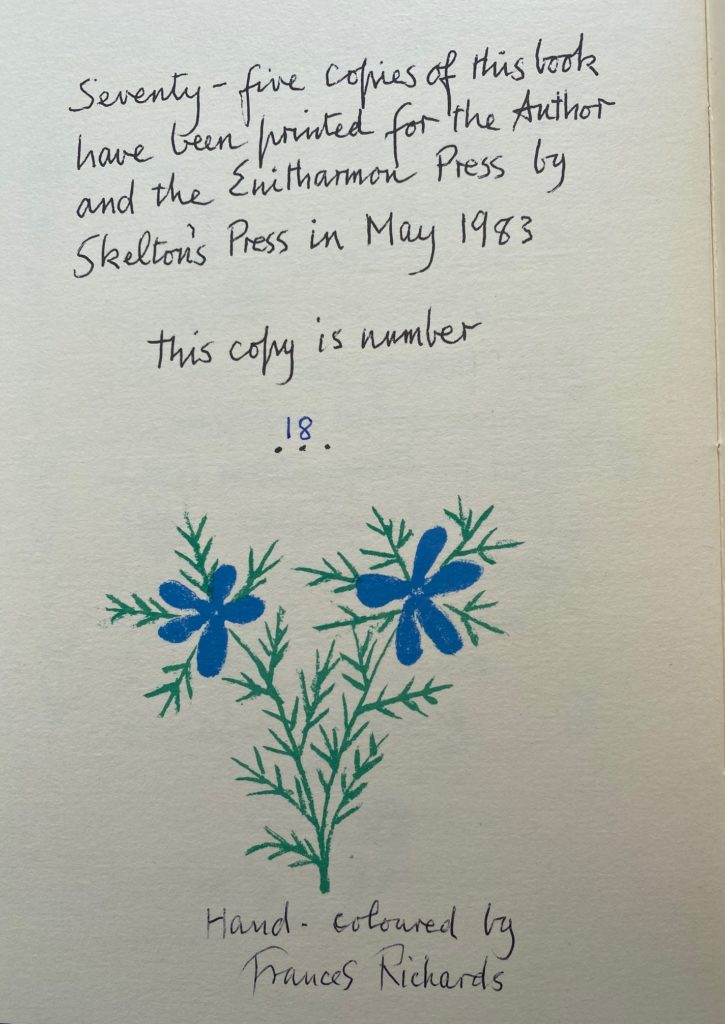 Seventy-five copies of this book
have been printed for the Author
and the Enitharmon Press by
Skelton's Press in May 1983
this copy is number
18
...
Hand-coloured by
Frances Richards